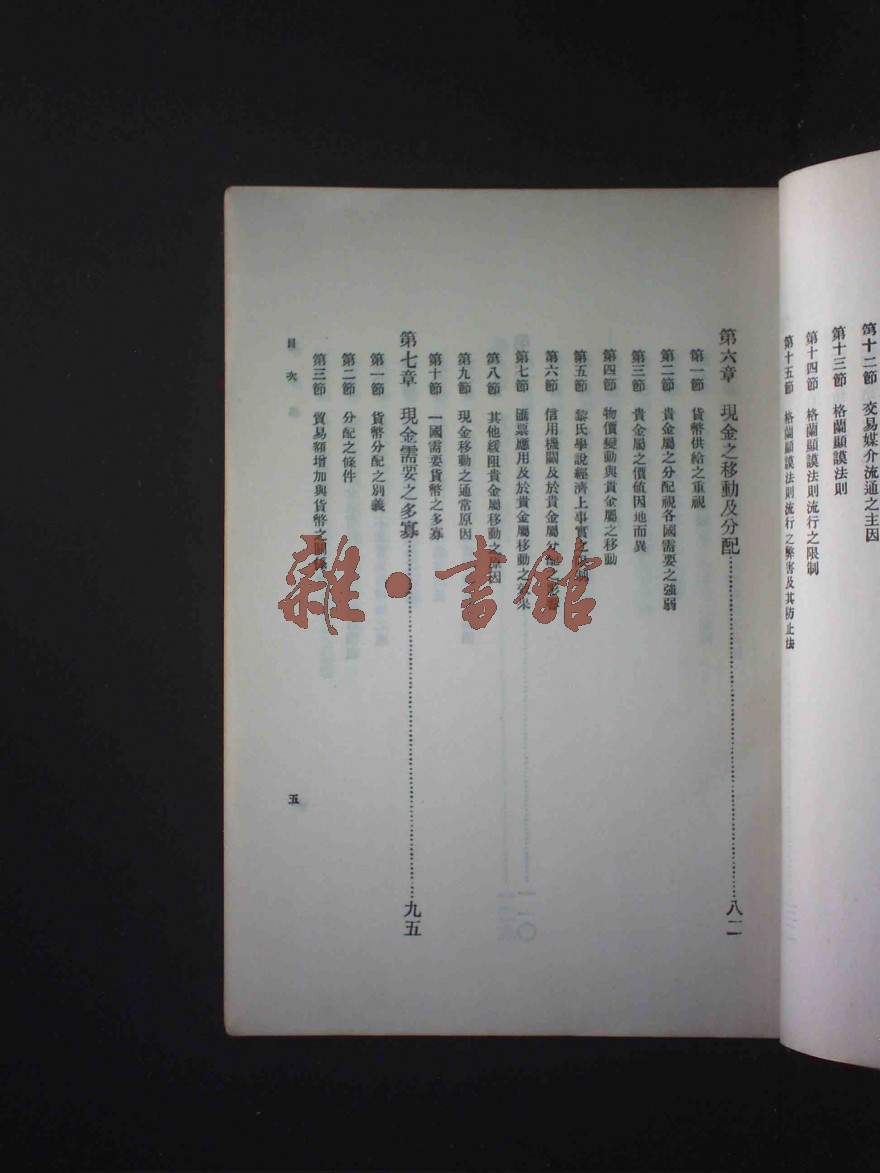 第十二節　交易媒介流通之主因
第十三節　格蘭顯謨法則
第十四節　格蘭顯謨法則流行之限制
第十五節　格蘭顯謨法則流行之弊害及其防止法
第六章　現金之移動及分配……八二
第一節　貨幣供給之重視
第二節　貴金屬之分配視各國需要之強弱
第三節　貴金屬之價値因地而異
第四節　物價變動與貴金屬之移動
第五節　黎氏學說經濟上事實限制
第六節　信用機關及於貴金屬分配之影響
第七節　匯票應用及於貴金屬移動之效果
第八節　其他緩阻貴金屬移動之原因
第九節　現金移動之通常原因
第十節　一國需要貨幣之多寡
第七章　現金需要之多寡……九五
第一節　貨幣分配之別義
第二節　分配之條件
第三節　貿易額增加與貨幣之關係
目次
五
雜·書館